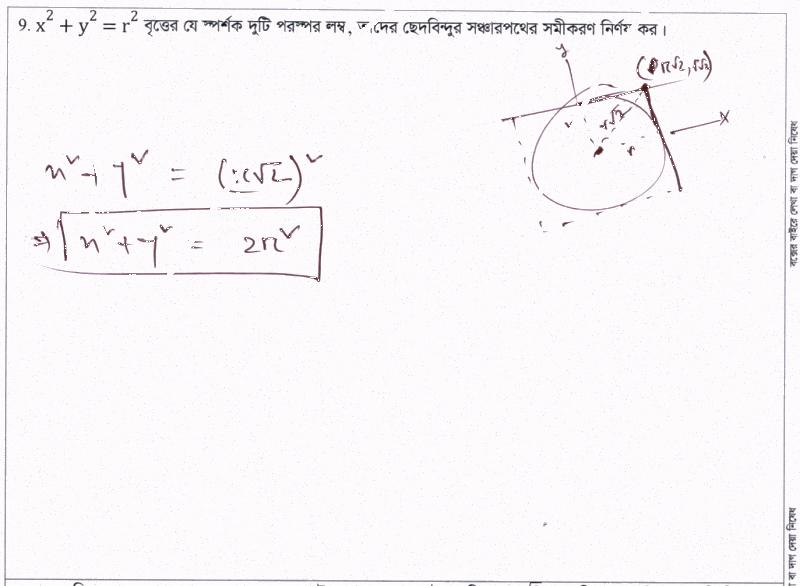 9. x² + y² = r² বৃত্তের যে স্পর্শক দুটি পরস্পর লম্ব, তাদের ছেদবিন্দুর সঞ্চারপথের সমীকরণ নির্ণয় কর।
y
r√2
r
r
X
x² + y² = (r√2)²
⇒ x² + y² = 2r²
বক্সের বাইরে লেখা বা দাগ দেয়া নিষেধ
বা দাগ দেয়া নিষেধ